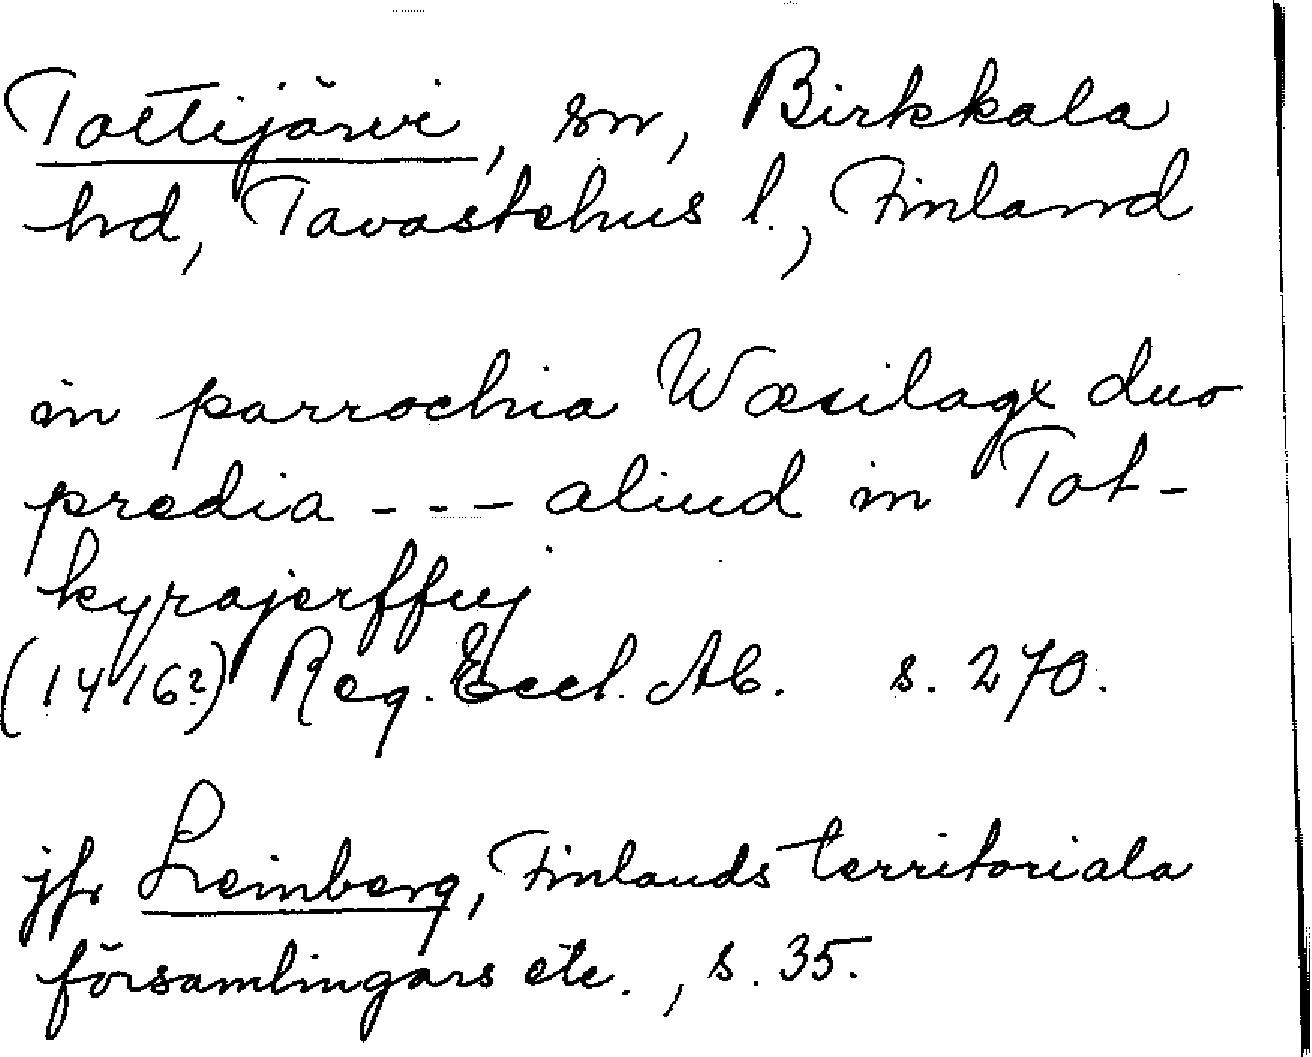 Tottijärvi, sn, Birkkala
hd, Tavastehus l., Finland
in parrochia Wæsilagx duo
predia --- aliud in Tot-
kyrajerffuj
(1416?) Reg. Eccl. Ab. s. 270.
jfr Leinberg, Finlands territoriala
församlingars etc., s. 35.